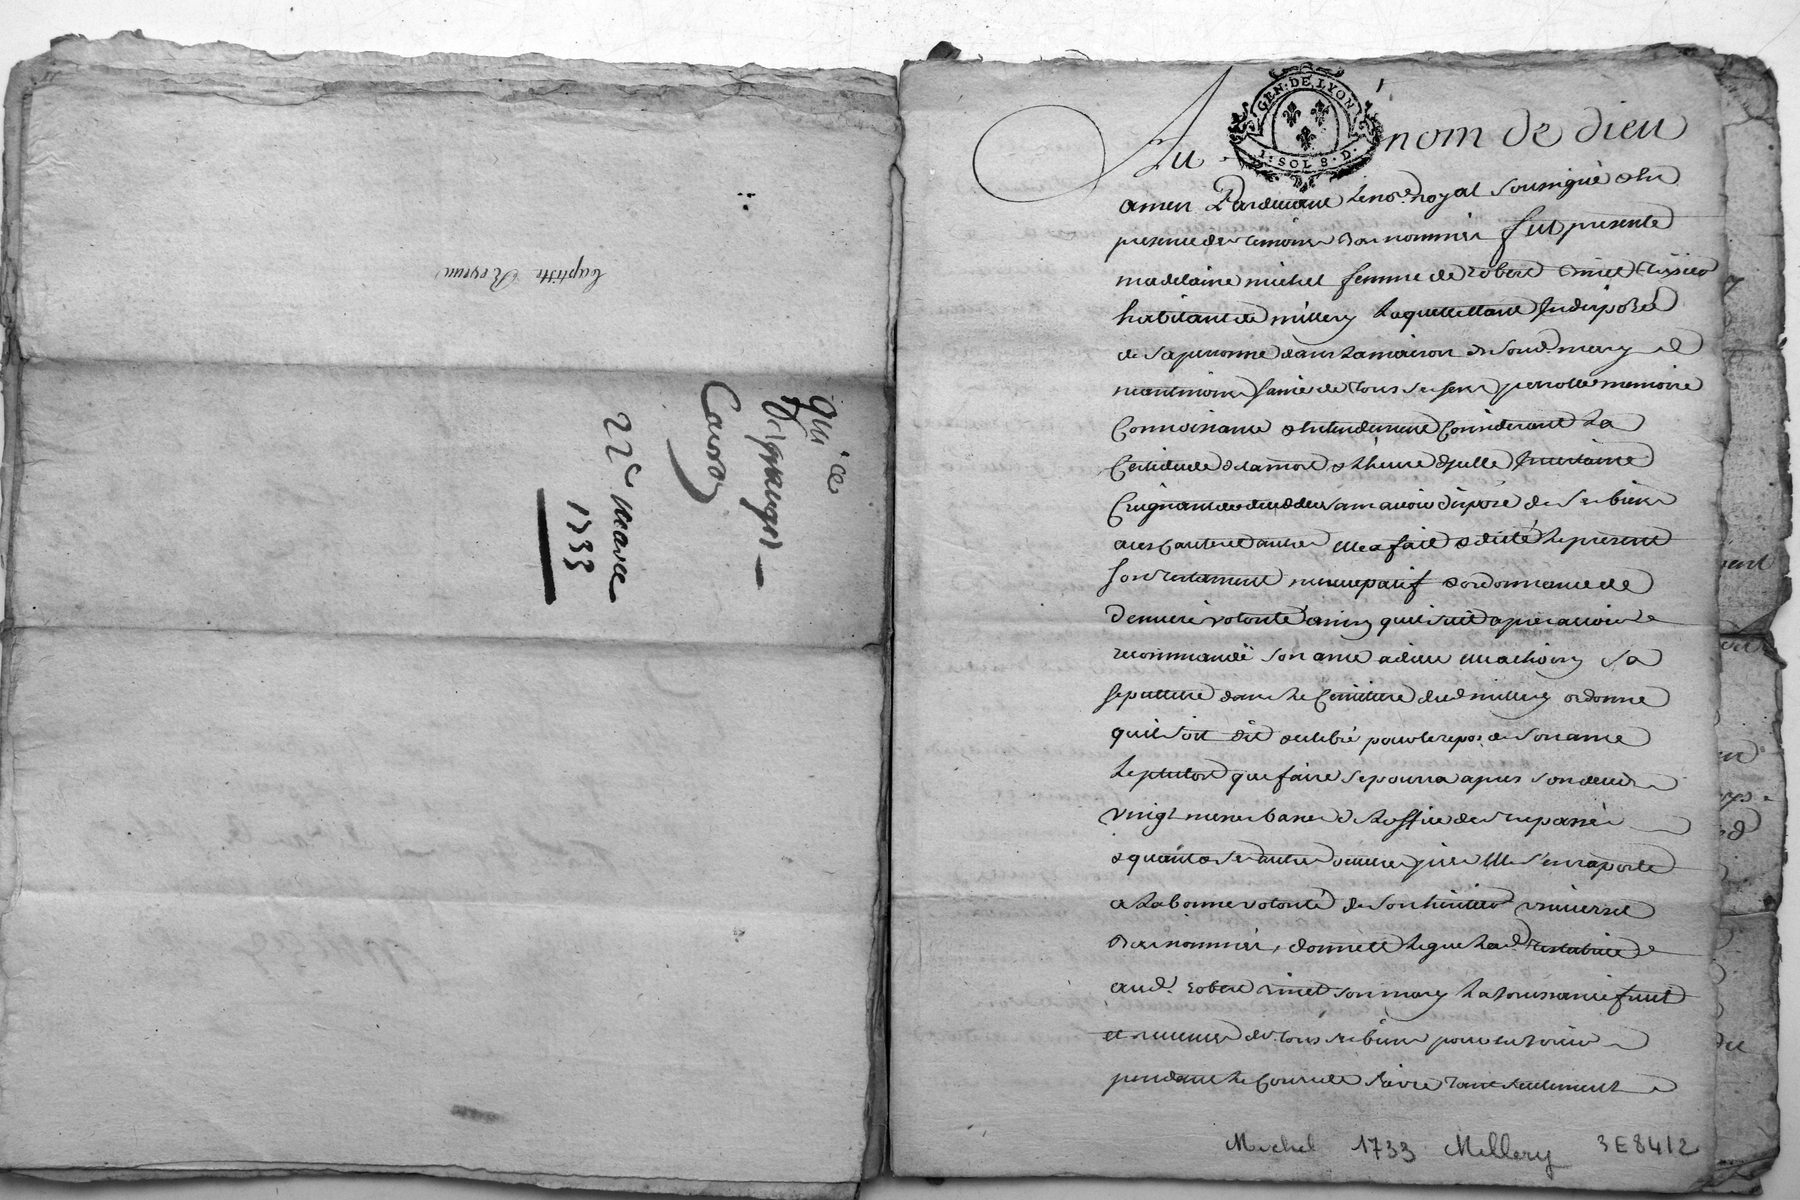 baptiste Reveu
22e mars
1733
GEN. DE LYON
1. SOL 8. D.
Au nom de dieu
amen Pardevant le nore royal soussigné & en
presence des temoins bas nommés fut presente
madelaine michel femme de robert vinet
habitant de millery laquelle etant indisposée
de sa personne dans la maison de sond. mary et
neantmoins saine de tous ses sens parolle memoire
connoissance & entendement considerant la
certitude de la mort & l'heure d'icelle incertaine
craignant de deceder sans avoir disposé de ses biens
elle a fait & dicté le present
son testament nuncupatif & ordonnance de
derniere volonté ainsy quil suit apres avoir
recommandé son ame a dieu elle a choisy sa
sepulture dans le cemitiere dud millery ordonne
quil soit dit & celebré pour le repos de son ame
le plutost que faire se pourra apres son deces
vingt messes basses de l'office des trepassés
& quant a ses autres oeuvres pies elle s'en raporte
a la bonne volonté de son heritier universel
bas nommé, donne & legue lad. testatrice
aud. robert vinet son mary la jouissance fruit
et revenus de tous ses biens pour en jouir
pendant le cours de sa vie tant seulement
Michel 1733 Millery 3E8412